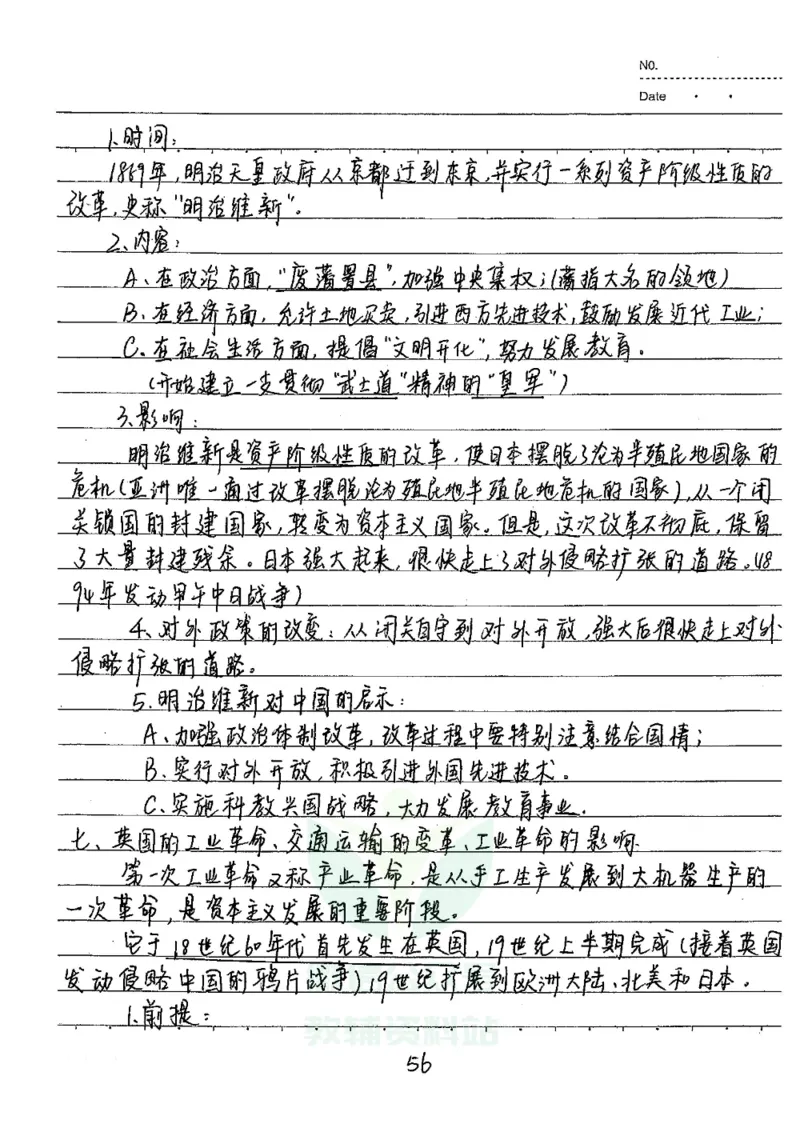 NO.
Date
1.时间:
1869年,明治天皇政府从京都迁到东京,并实行一系列资产阶级性质的
改革,史称"明治维新"。
2、内容:
A、在政治方面,"废藩置县",加强中央集权;(藩指大名的领地)
B、在经济方面,允许土地买卖,引进西方先进技术,鼓励发展近代工业;
C、在社会生活方面,提倡"文明开化",努力发展教育。
(开始建立一支贯彻"武士道"精神的"皇军")
3、影响:
明治维新是资产阶级性质的改革,使日本摆脱了沦为半殖民地国家的
危机(亚洲唯一通过改革摆脱沦为殖民地半殖民地危机的国家),从一个闭
关锁国的封建国家,转变为资本主义国家。但是,这次改革不彻底,保留
了大量封建残余。日本强大起来,很快走上了对外侵略扩张的道路。(18
94年发动甲午中日战争)
4、对外政策的改变:从闭关自守到对外开放,强大后很快走上对外
侵略扩张的道路。
5.明治维新对中国的启示:
A、加强政治体制改革,改革过程中要特别注意结合国情;
B、实行对外开放,积极引进外国先进技术。
C、实施科教兴国战略,大力发展教育事业.
七、英国的工业革命、交通运输的变革、工业革命的影响.
第一次工业革命又称产业革命,是从手工生产发展到大机器生产的
一次革命,是资本主义发展的重要阶段。
它于18世纪60年代首先发生在英国,19世纪上半期完成(接着英国
发动侵略中国的鸦片战争)19世纪扩展到欧洲大陆、北美和日本。
1.前提:
教辅资料站
56